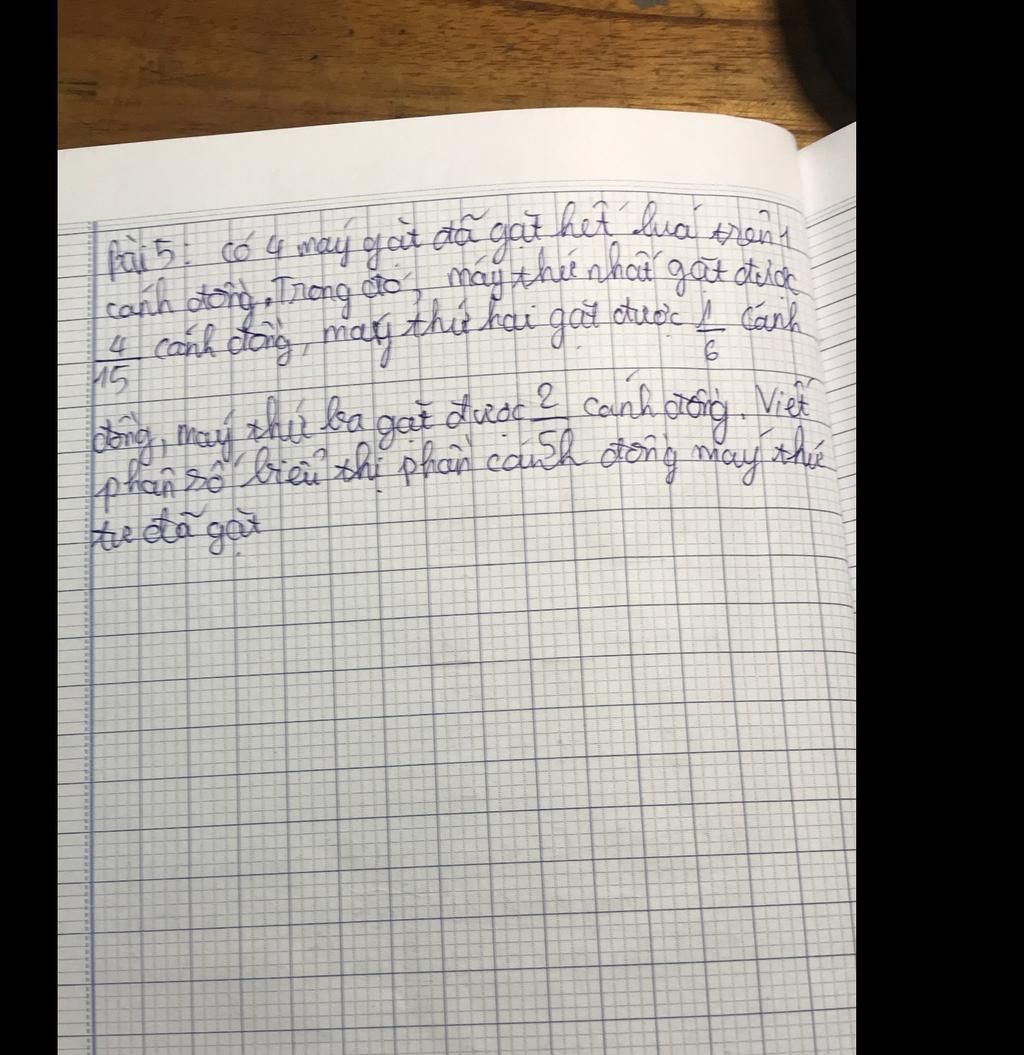 Bài 5: Có 4 máy gặt đã gặt hết lúa trên 1
cánh đồng. Trong đó, máy thứ nhất gặt được
4/15 cánh đồng, máy thứ hai gặt được 1/6 cánh
đồng, máy thứ ba gặt được 2/5 cánh đồng. Viết
phân số biểu thị phần cánh đồng máy thứ
tư đã gặt